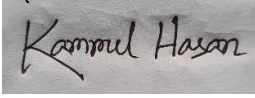 Kammul Hasan